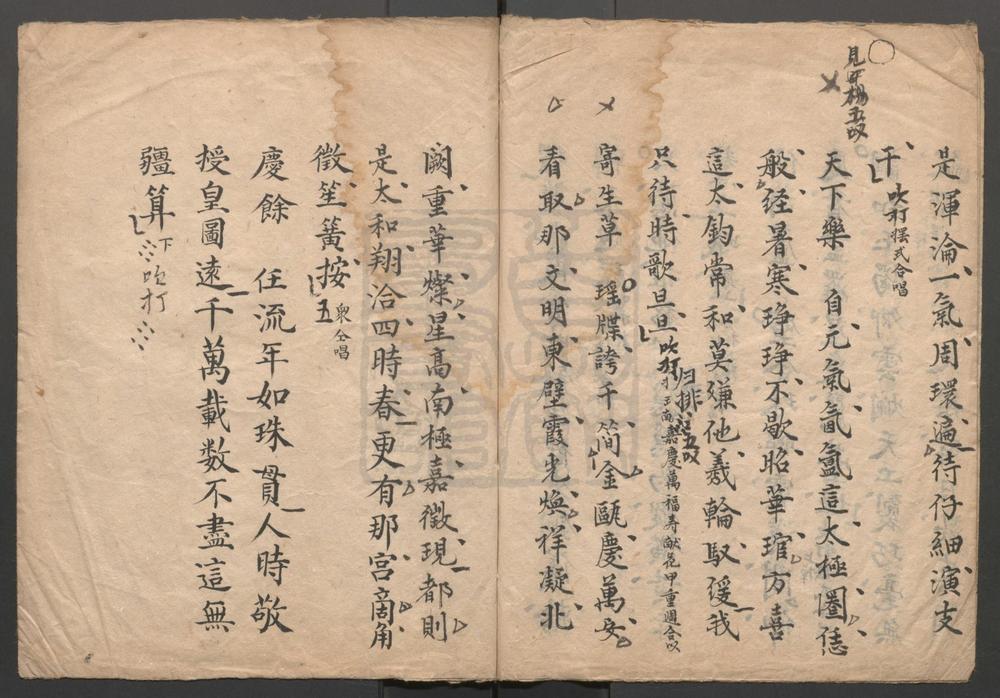 是渾淪一氣周環遍待仔細演支
干 吹打摆式合唱
天下樂 自元氣氤氳這太極圈恁
般經暑寒琤琤不歇昭華琯方喜
這太鈞常和莫嫌他羲輪馭緩我
只待時歌旦旦 吹打 嘉慶萬福寿献花甲重週合以
归排五改
寄生草 瑶牒誇千简金甌慶萬安
看取那文明東壁霞光煥祥凝北
闕重華燦星高南極嘉徵現都則
是太和翔洽四時春更有那宮商角
徵笙簧按 五 衆仝唱
慶餘 任流年如珠貫人時敬
授皇圖遠千萬載数不盡這無
疆算 下 吹打